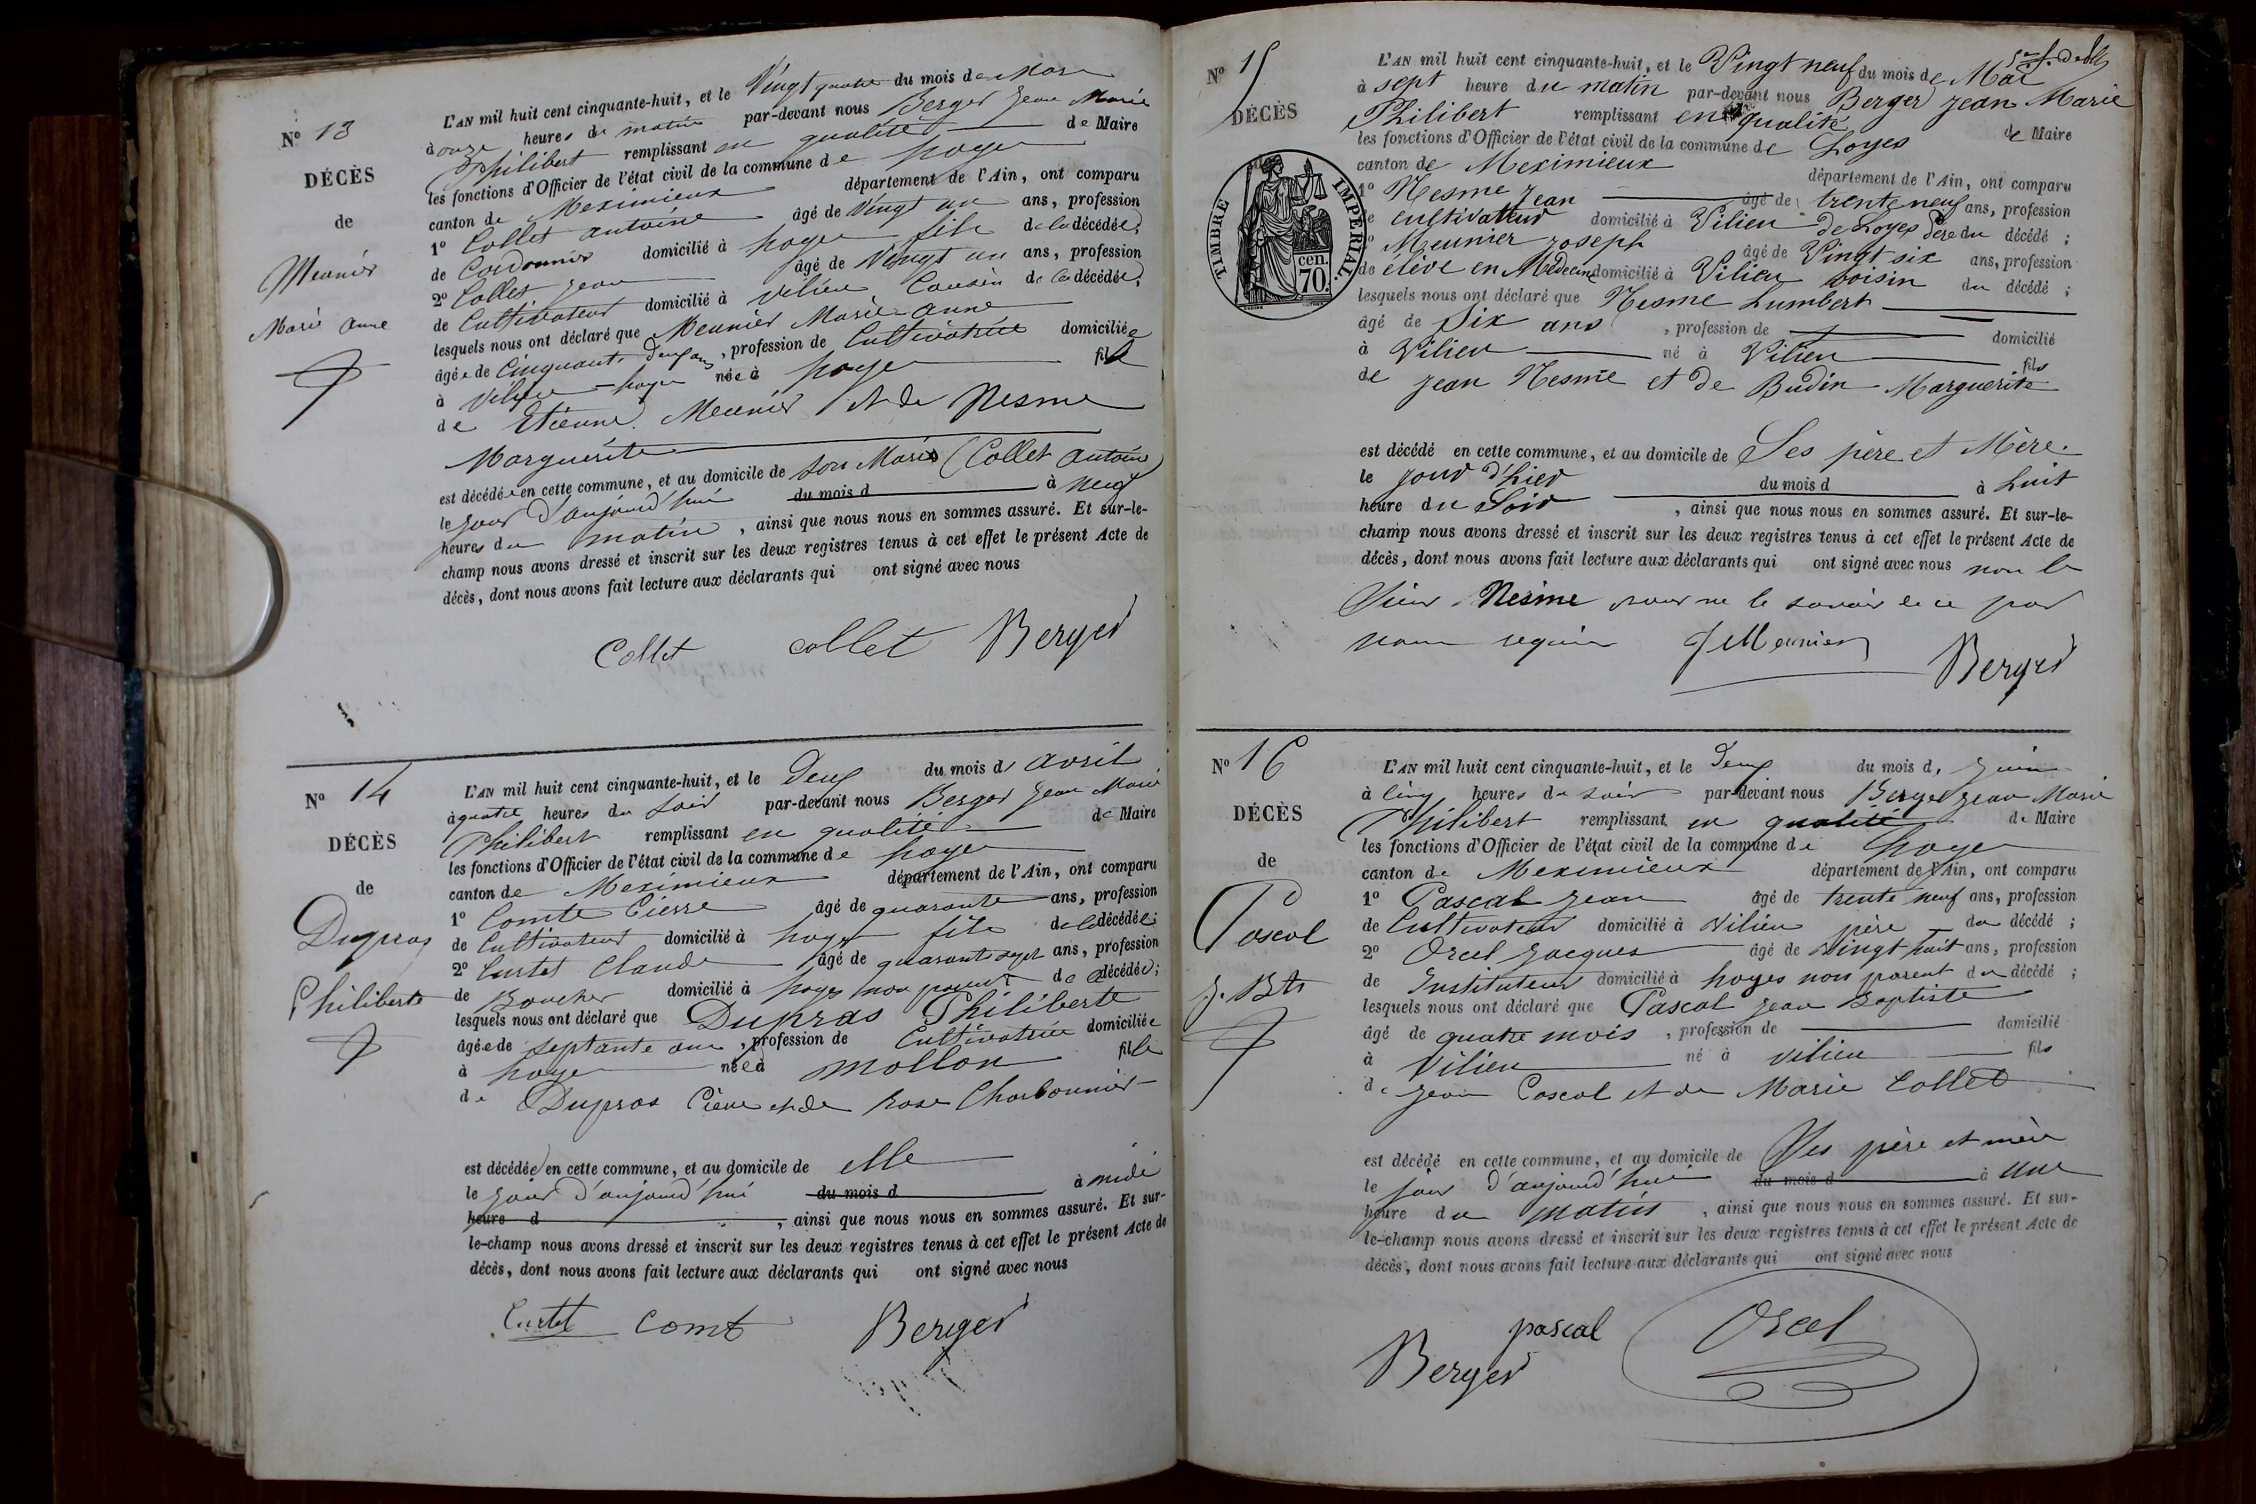 N° 13
DÉCÈS
de
Meunier
Marie anne
L'AN mil huit cent cinquante-huit, et le Vingt quatre du mois de Mars
à onze heures du matin par-devant nous Berger Jean Marie
Philibert remplissant en qualité de Maire
les fonctions d'Officier de l'état civil de la commune de Loyes
canton de Meximieux département de l'Ain, ont comparu
1° Collet antoine âgé de Vingt un ans, profession
de Cordonnier domicilié à Loyes fils de la décédée;
2° Collet Jean âgé de Vingt un ans, profession
de Cultivateur domicilié à Vilieu Cousin de la décédée;
lesquels nous ont déclaré que Meunier Marie anne
âgée de Cinquante deux ans, profession de Cultivatrice domiciliée
à Vilieu Loyes née à Loyes fille
de Etienne Meunier et de Nesme
Marguerite
est décédée en cette commune, et au domicile de son Marie (Collet antoine)
le jour d'aujourd'hui du mois d à neuf
heures du matin, ainsi que nous nous en sommes assuré. Et sur-le-
champ nous avons dressé et inscrit sur les deux registres tenus à cet effet le présent Acte de
décès, dont nous avons fait lecture aux déclarants qui ont signé avec nous
Collet collet Berger
N° 14
DÉCÈS
de
Dupras
Philiberte
L'AN mil huit cent cinquante-huit, et le Deux du mois d avril
à quatre heures du soir par-devant nous Berger Jean Marie
Philibert remplissant en qualité de Maire
les fonctions d'Officier de l'état civil de la commune de Loyes
canton de Meximieux département de l'Ain, ont comparu
1° Comte Pierre âgé de quarante ans, profession
de Cultivateur domicilié à Loyes fils de la décédée;
2° Curtet Claude âgé de quarante sept ans, profession
de Boucher domicilié à Loyes non parent de la décédée;
lesquels nous ont déclaré que Dupras Philiberte
âgée de septante ans, profession de Cultivatrice domiciliée
à Loyes née à Mollon fille
de Dupras Pierre et de Rose Charbonnier
est décédée en cette commune, et au domicile de elle
le jour d'aujourd'hui du mois d à midi
heure d, ainsi que nous nous en sommes assuré. Et sur-
le-champ nous avons dressé et inscrit sur les deux registres tenus à cet effet le présent Acte de
décès, dont nous avons fait lecture aux déclarants qui ont signé avec nous
Curtet Comt Berger
N° 15
DÉCÈS
TIMBRE IMPÉRIAL.
cen.
70.
L'AN mil huit cent cinquante-huit, et le Vingt neuf du mois de Mai
à sept heure du matin par-devant nous Berger Jean Marie
Philibert remplissant en qualité de Maire
les fonctions d'Officier de l'état civil de la commune de Loyes
canton de Meximieux département de l'Ain, ont comparu
1° Nesme Jean âgé de trente neuf ans, profession
de cultivateur domicilié à Vilieu de Loyes Père du décédé;
2° Meunier Joseph âgé de Vingt six ans, profession
de élève en Médecine domicilié à Vilieu voisin du décédé;
lesquels nous ont déclaré que Nesme Lumbert
âgé de Six ans, profession de domicilié
à Vilieu né à Vilieu fils
de Jean Nesme et de Budin Marguerite
est décédé en cette commune, et au domicile de Ses père et Mère.
le jour d'hier du mois d à huit
heure du Soir, ainsi que nous nous en sommes assuré. Et sur-le-
champ nous avons dressé et inscrit sur les deux registres tenus à cet effet le présent Acte de
décès, dont nous avons fait lecture aux déclarants qui ont signé avec nous non le
Sieur Nesme pour ne le savoir de ce par
nous requis J Meunier
Berger
N° 16
DÉCÈS
de
Pascal
J. Bte
L'AN mil huit cent cinquante-huit, et le Deux du mois d. Juin
à Cinq heures du soir par-devant nous Berger Jean Marie
Philibert remplissant en qualité de Maire
les fonctions d'Officier de l'état civil de la commune de Loyes
canton de Meximieux département de l'Ain, ont comparu
1° Pascal Jean âgé de trente neuf ans, profession
de Cultivateur domicilié à Vilieu père du décédé;
2° Orcel Jacques âgé de Vingt huit ans, profession
de Instituteur domicilié à Loyes non parent du décédé;
lesquels nous ont déclaré que Pascal Jean Baptiste
âgé de quatre mois, profession de domicilié
à Vilieu né à Vilieu fils
de Jean Pascal et de Marie Collet
est décédé en cette commune, et au domicile de Ses père et mère
le jour d'aujourd'hui du mois d à une
heure du matin, ainsi que nous nous en sommes assuré. Et sur-
le-champ nous avons dressé et inscrit sur les deux registres tenus à cet effet le présent Acte de
décès, dont nous avons fait lecture aux déclarants qui ont signé avec nous
pascal Orcel
Berger